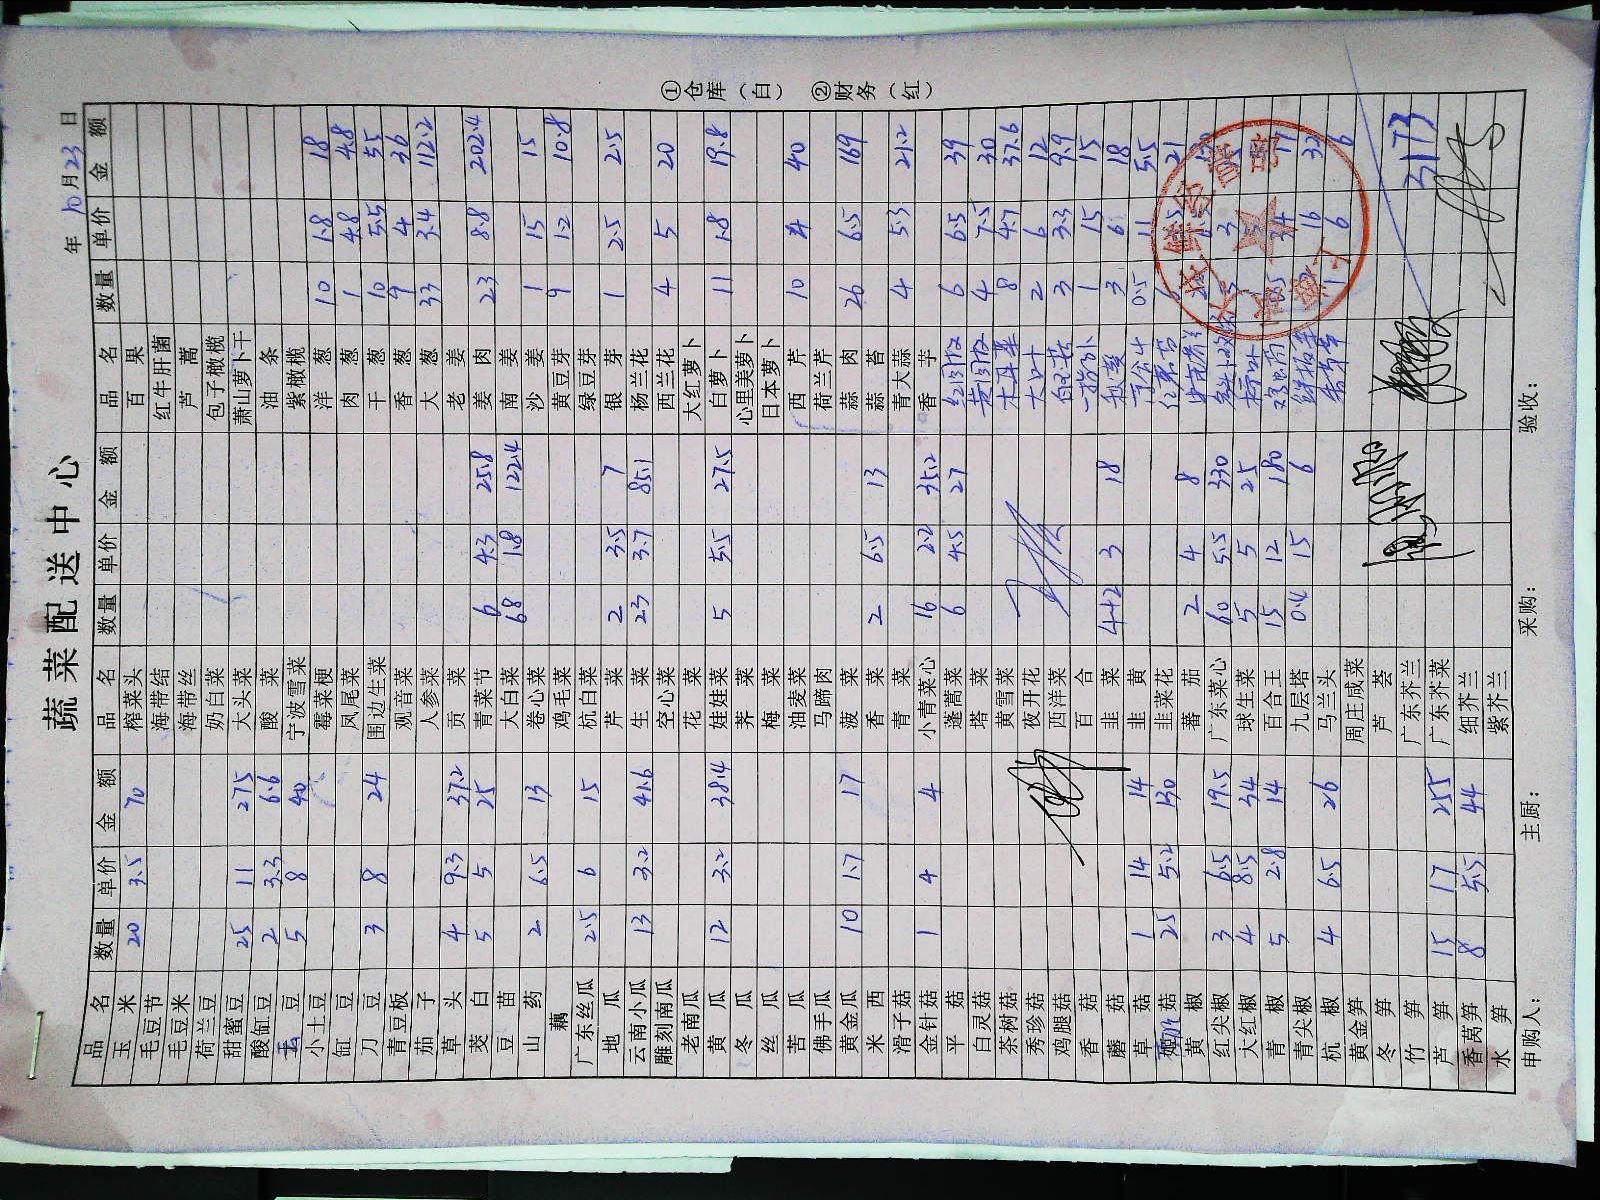 蔬菜配送中心
年 10月23日
品名 数量 单价 金额 品名 数量 单价 金额 品名 数量 单价 金额
玉米 20 3.5 70 榨菜头 百果
毛豆节 海带结 红牛肝菌
毛豆米 海带丝 芦蒿
荷兰豆 奶白菜 包子橄榄
甜蜜豆 25 11 275 大头菜 萧山萝卜干
酸缸豆 2 3.3 6.6 酸菜 油条
豆 5 8 40 宁波雪菜 紫橄榄
小土豆 霉菜梗 洋葱 10 1.8 18
缸豆 凤尾菜 肉葱 1 4.8 4.8
刀豆 3 8 24 围边生菜 干葱 10 5.5 55
青豆板 观音菜 香葱 9 4 36
茄子 人参菜 大葱 33 3.4 112.2
草头 4 9.3 37.2 贡菜 老姜
茭白 5 5 25 青菜节 6 4.3 25.8 姜肉 23 8.8 202.4
豆苗 大白菜 68 1.8 122.4 南姜
山药 2 6.5 13 卷心菜 沙姜 1 15 15
藕 鸡毛菜 黄豆芽 9 1.2 10.8
广东丝瓜 2.5 6 15 杭白菜 绿豆芽
地瓜 芹菜 2 3.5 7 银芽 1 2.5 2.5
云南小瓜 13 3.2 41.6 生菜 23 3.7 85.1 杨兰花
雕刻南瓜 空心菜 西兰花 4 5 20
老南瓜 花菜 大红萝卜
黄瓜 12 3.2 38.4 娃娃菜 5 5.5 27.5 白萝卜 11 1.8 19.8
冬瓜 荠菜 心里美萝卜
丝瓜 梅菜 日本萝卜
苦瓜 油麦菜 西芹 10 4 40
佛手瓜 马蹄肉 荷兰芹
黄金瓜 10 1.7 17 菠菜 蒜肉 26 6.5 169
米西 香菜 2 6.5 13 蒜苔
滑子菇 青菜 青大蒜 4 5.3 21.2
金针菇 1 4 4 小青菜心 16 2.2 35.2 香芋
平菇 蓬蒿菜 6 4.5 27 6 6.5 39
白灵菇 塔菜 4 7.5 30
茶树菇 黄雪菜 8 4.7 37.6
秀珍菇 夜开花 大叶 2 6 12
鸡腿菇 西洋菜 3 3.3 9.9
香菇 百合 1 15 15
蘑菇 韭菜 4+2 3 18 3 6 18
草菇 1 14 14 韭黄 0.5 11 5.5
菇 25 5.2 130 韭菜花 6 21
黄椒 蕃茄 2 4 8
红尖椒 3 6.5 19.5 广东菜心 60 5.5 330
大红椒 4 8.5 34 球生菜 5 5 25
青椒 5 2.8 14 百合王 15 12 180
青尖椒 九层塔 0.4 15 6 16 32
杭椒 4 6.5 26 马兰头 1 6 6
黄金笋 周庄咸菜
冬笋 芦荟
竹笋 广东芥兰
芦笋 15 17 255 广东芥菜 3173
香莴笋 8 5.5 44 细芥兰
水笋 紫芥兰
申购人： 主厨： 采购： 验收：
①仓库（白） ②财务（红）